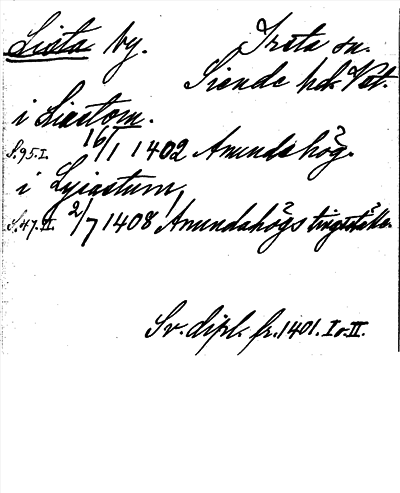 Lista by. Irsta sn.
Siende hd. Vst.
i Liastom.
S.95.I. 16/1 1402 Amundshög.
i Lyiastum,
S.47.II. 2/7 1408 Amundshögs tingställe.
Sv. dipl. fr. 1401. I o. II.